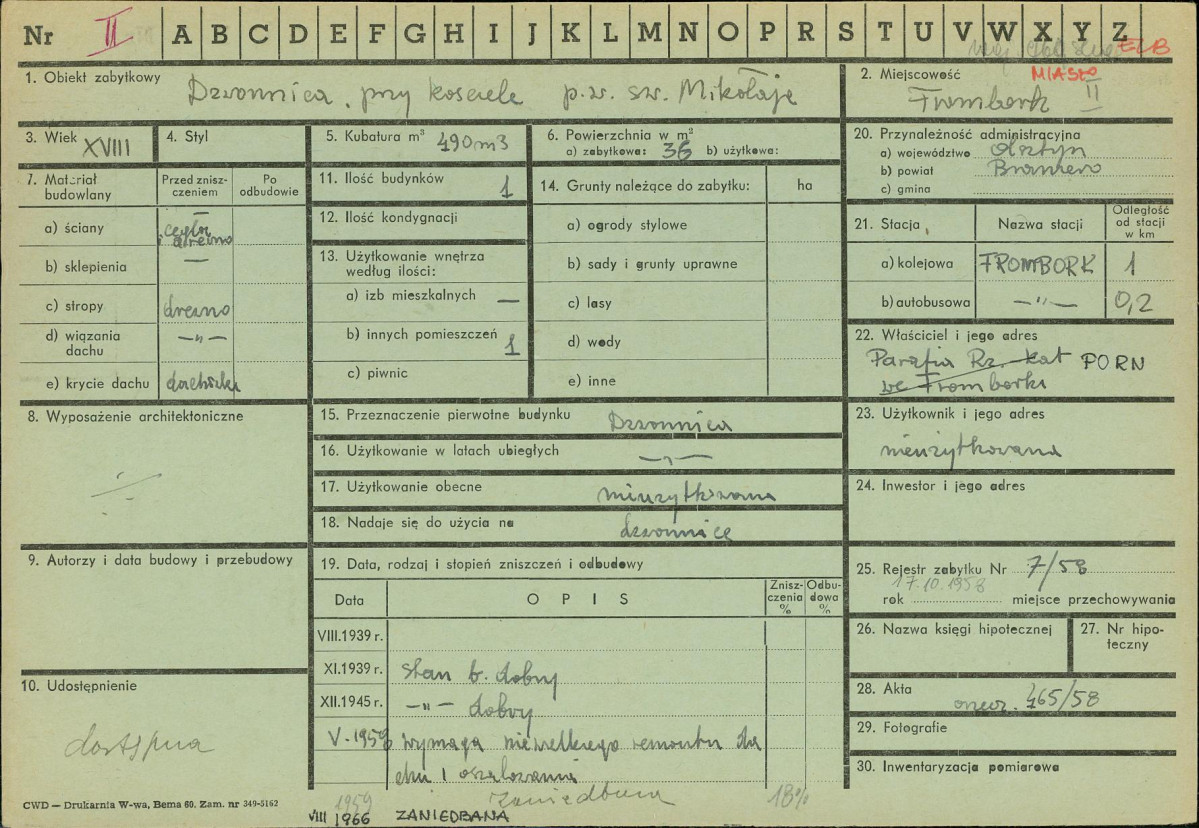 Nr II A B C D E F G H I J K L M N O P R S T U V W X Y Z
woj. ELB
1. Obiekt zabytkowy
Dzwonnica, przy kościele p.w. św. Mikołaja
2. Miejscowość MIASTO
Frombork II
3. Wiek XVIII
4. Styl
5. Kubatura m³ 490 m3
6. Powierzchnia w m²
a) zabytkowa: 36 b) użytkowa:
7. Materiał budowlany
Przed zniszczeniem
Po odbudowie
a) ściany cegła i drewno
b) sklepienia —
c) stropy drewno
d) wiązania dachu —"—
e) krycie dachu dachówka
8. Wyposażenie architektoniczne
9. Autorzy i data budowy i przebudowy
10. Udostępnienie
dostępna
11. Ilość budynków 1
12. Ilość kondygnacji
13. Użytkowanie wnętrza według ilości:
a) izb mieszkalnych —
b) innych pomieszczeń 1
c) piwnic
14. Grunty należące do zabytku: ha
a) ogrody stylowe
b) sady i grunty uprawne
c) lasy
d) wody
e) inne
15. Przeznaczenie pierwotne budynku Dzwonnica
16. Użytkowanie w latach ubiegłych —"—
17. Użytkowanie obecne nieużytkowana
18. Nadaje się do użycia na dzwonnicę
19. Data, rodzaj i stopień zniszczeń i odbudowy
Data
OPIS
Zniszczenia %
Odbudowa %
VIII.1939 r.
XI.1939 r. stan b. dobry
XII.1945 r. —"— dobry
V-1959 wymaga niewielkiego remontu da
chu i oszalowania
1959 zaniedbana 18%
VIII 1966 ZANIEDBANA
20. Przynależność administracyjna
a) województwo Olsztyn
b) powiat Braniewo
c) gmina
21. Stacja
Nazwa stacji
Odległość od stacji w km
a) kolejowa FROMBORK 1
b) autobusowa —"— 0,2
22. Właściciel i jego adres
Parafia Rz.-kat PGRN
we Fromborku
23. Użytkownik i jego adres
nieużytkowana
24. Inwestor i jego adres
25. Rejestr zabytku Nr 7/58
17.10.1958
rok miejsce przechowywania
26. Nazwa księgi hipotecznej
27. Nr hipoteczny
28. Akta 465/58
29. Fotografie
30. Inwentaryzacja pomiarowa
CWD — Drukarnia W-wa, Bema 60. Zam. nr 349-5162